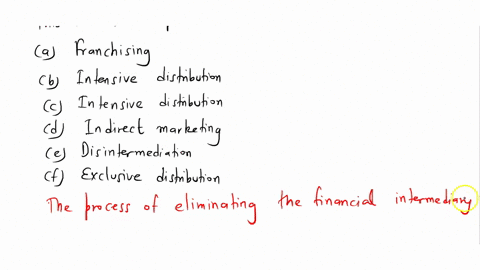 (a) Franchising
(b) Intensive distribution
(c) Intensive distribution
(d) Indirect marketing
(e) Disintermediation
(f) Exclusive distribution
The process of eliminating the financial intermediary